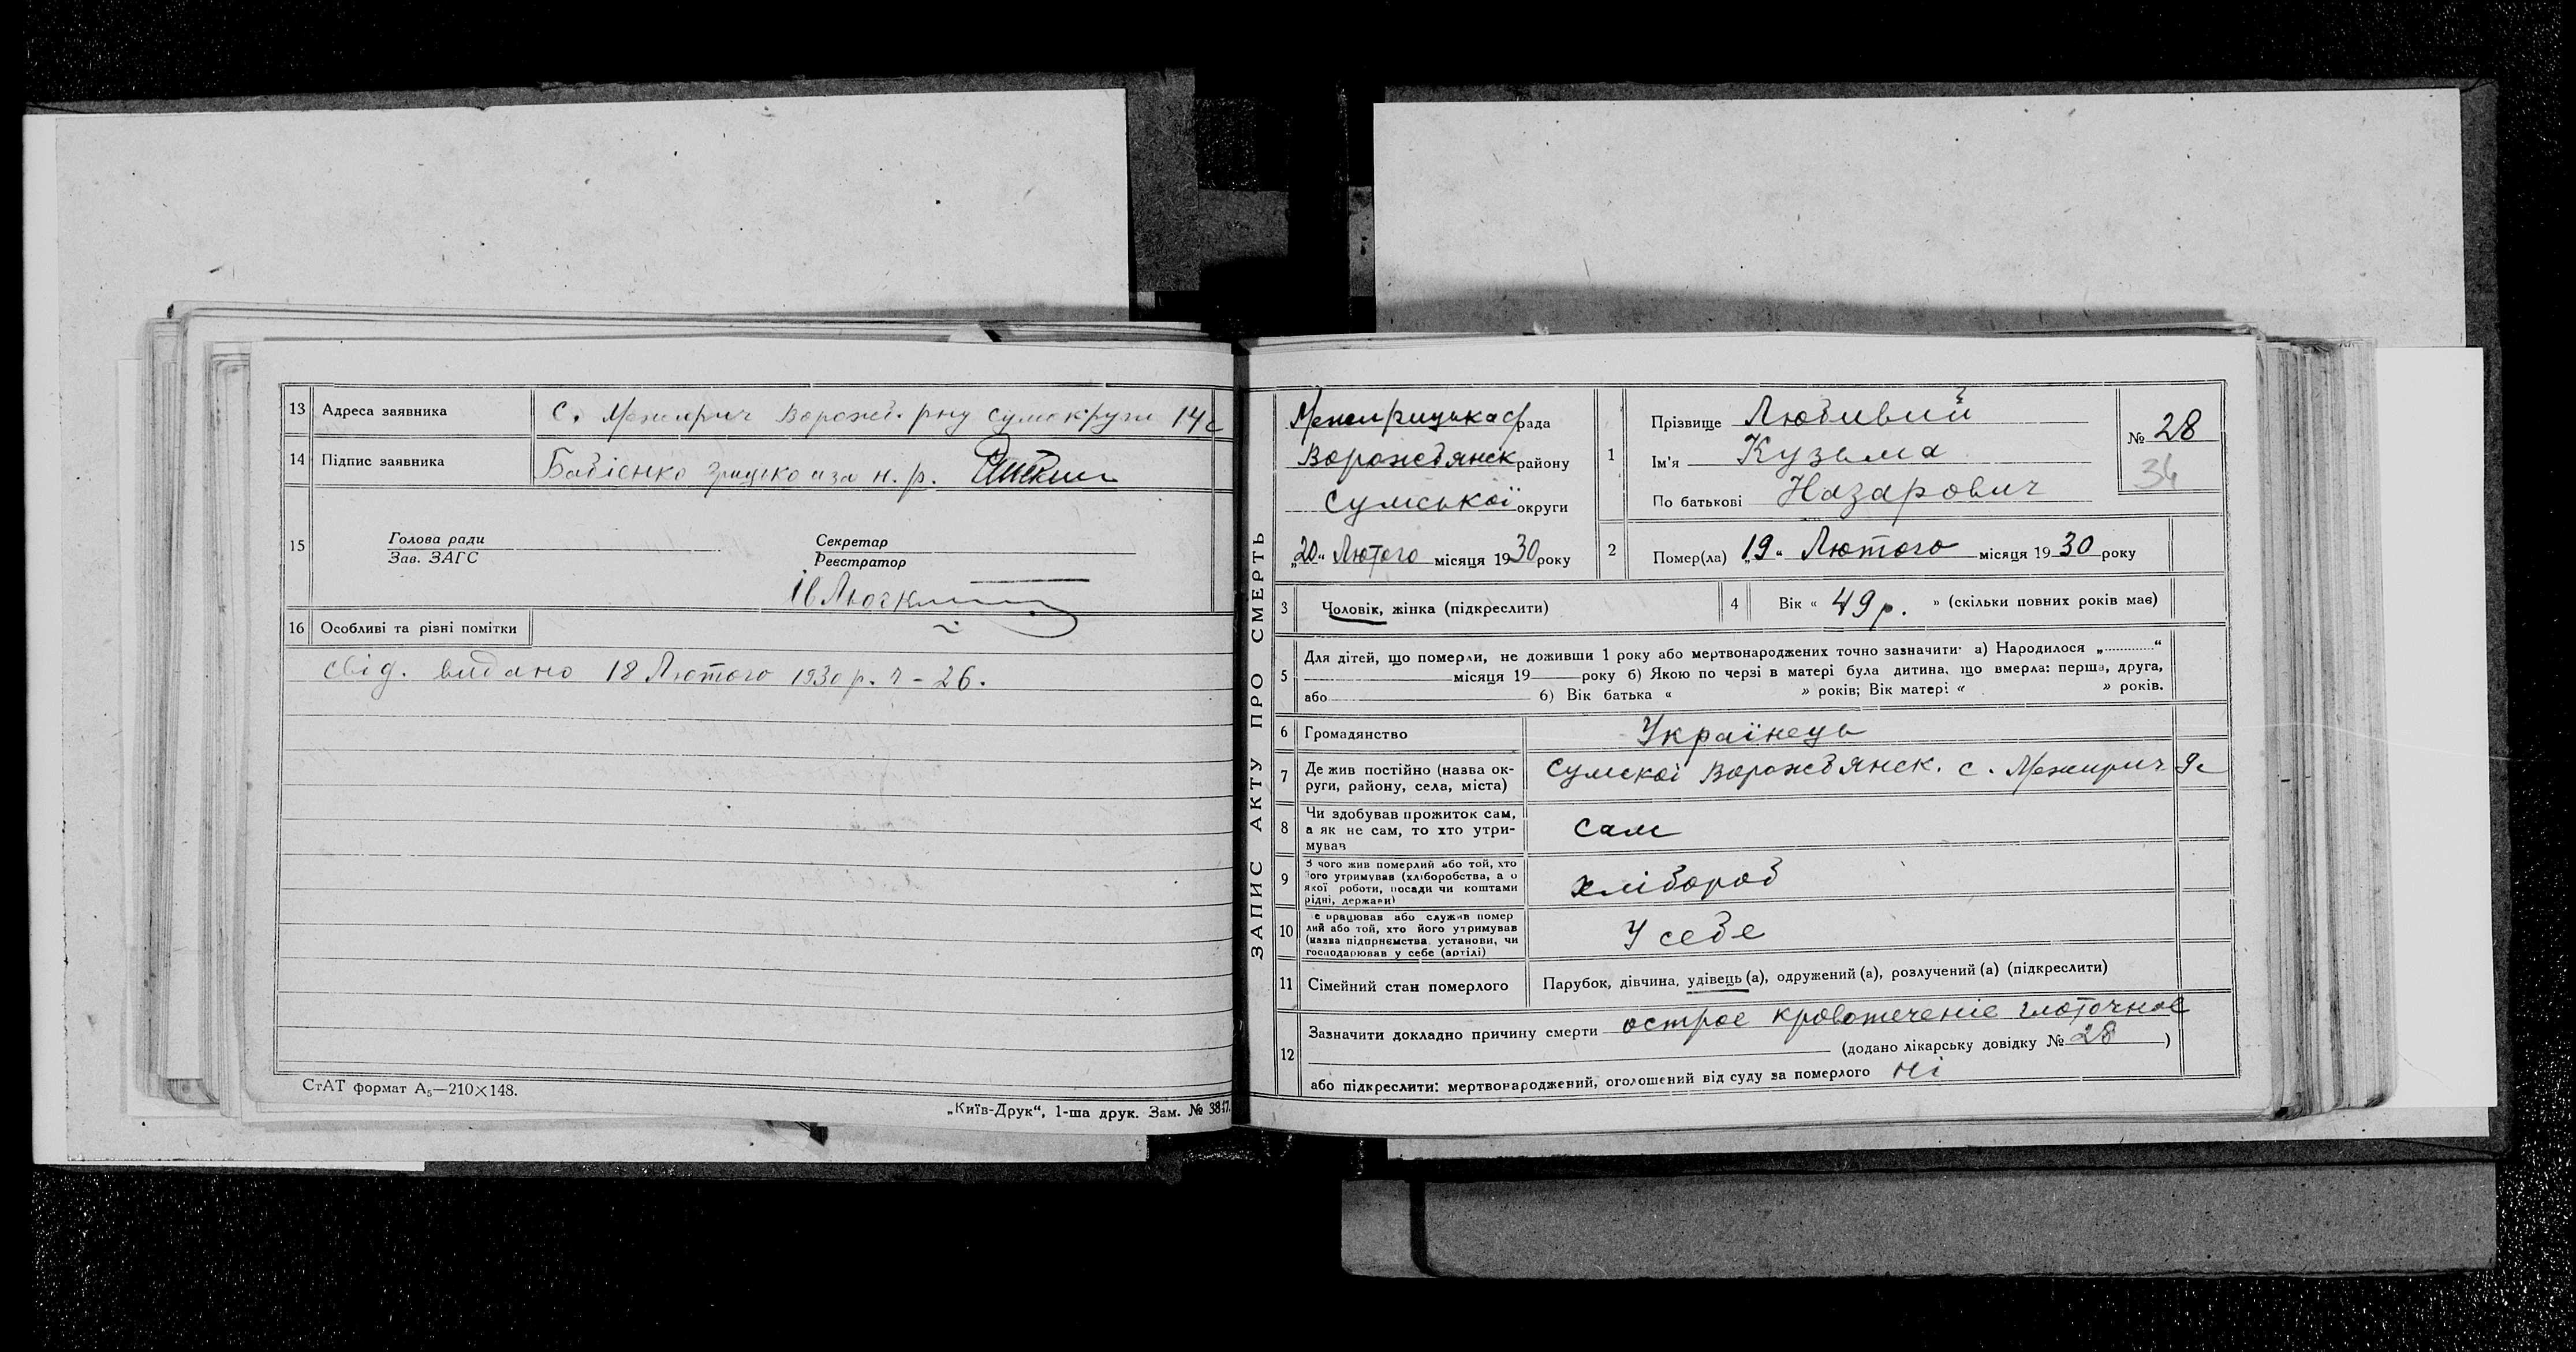 13 Адреса заявника С. Межирич Ворожб. рну Сумокруги 14с
14 Підпис заявника Бабієнко Грицко а за н. р.
15 Голова ради
Зав. ЗАГС
Секретар
Реєстратор
16 Особливі та різні помітки
Свід. видано 18 Лютого 1930 р. ч - 26.
СтАТ формат А₅—210×148.
„Київ-Друк“, 1-ша друк. Зам. № 3817.
ЗАПИС АКТУ ПРО СМЕРТЬ
Межирицька с/рада
Ворожбянск району
Сумської округи
„20“ Лютого місяця 1930 року
1 Прізвище Любивий
Ім'я Кузьма
По батькові Назарович
№ 28
34
2 Помер(ла) „19“ Лютого місяця 1930 року
3 Чоловік, жінка (підкреслити)
4 Вік « 49 р. » (скільки повних років має)
5 Для дітей, що померли, не доживши 1 року або мертвонароджених точно зазначити: а) Народилося „ “
місяця 19 року б) Якою по черзі в матері була дитина, що вмерла: перша, друга,
або б) Вік батька « » років; Вік матері « » років.
6 Громадянство Українець
7 Де жив постійно (назва ок-
руги, району, села, міста) Сумскої Ворожбянск. с. Межирич 9с
8 Чи здобував прожиток сам,
а як не сам, то хто утри-
мував сам
9 З чого жив померлий або той, хто
його утримував (хліборобства, а о
якої роботи, посади чи коштами
рідні, держави) хлібороб
10 е працював або служив помер
лий або той, хто його утримував
(назва підприємства установи, чи
господарював у себе (артілі) У себе
11 Сімейний стан померлого Парубок, дівчина, удівець (а), одружений (а), розлучений (а) (підкреслити)
12 Зазначити докладно причину смерти острое кровотеченіе глоточное
(додано лікарську довідку № 28 )
або підкреслити: мертвонароджений, оголошений від суду за померлого Ні